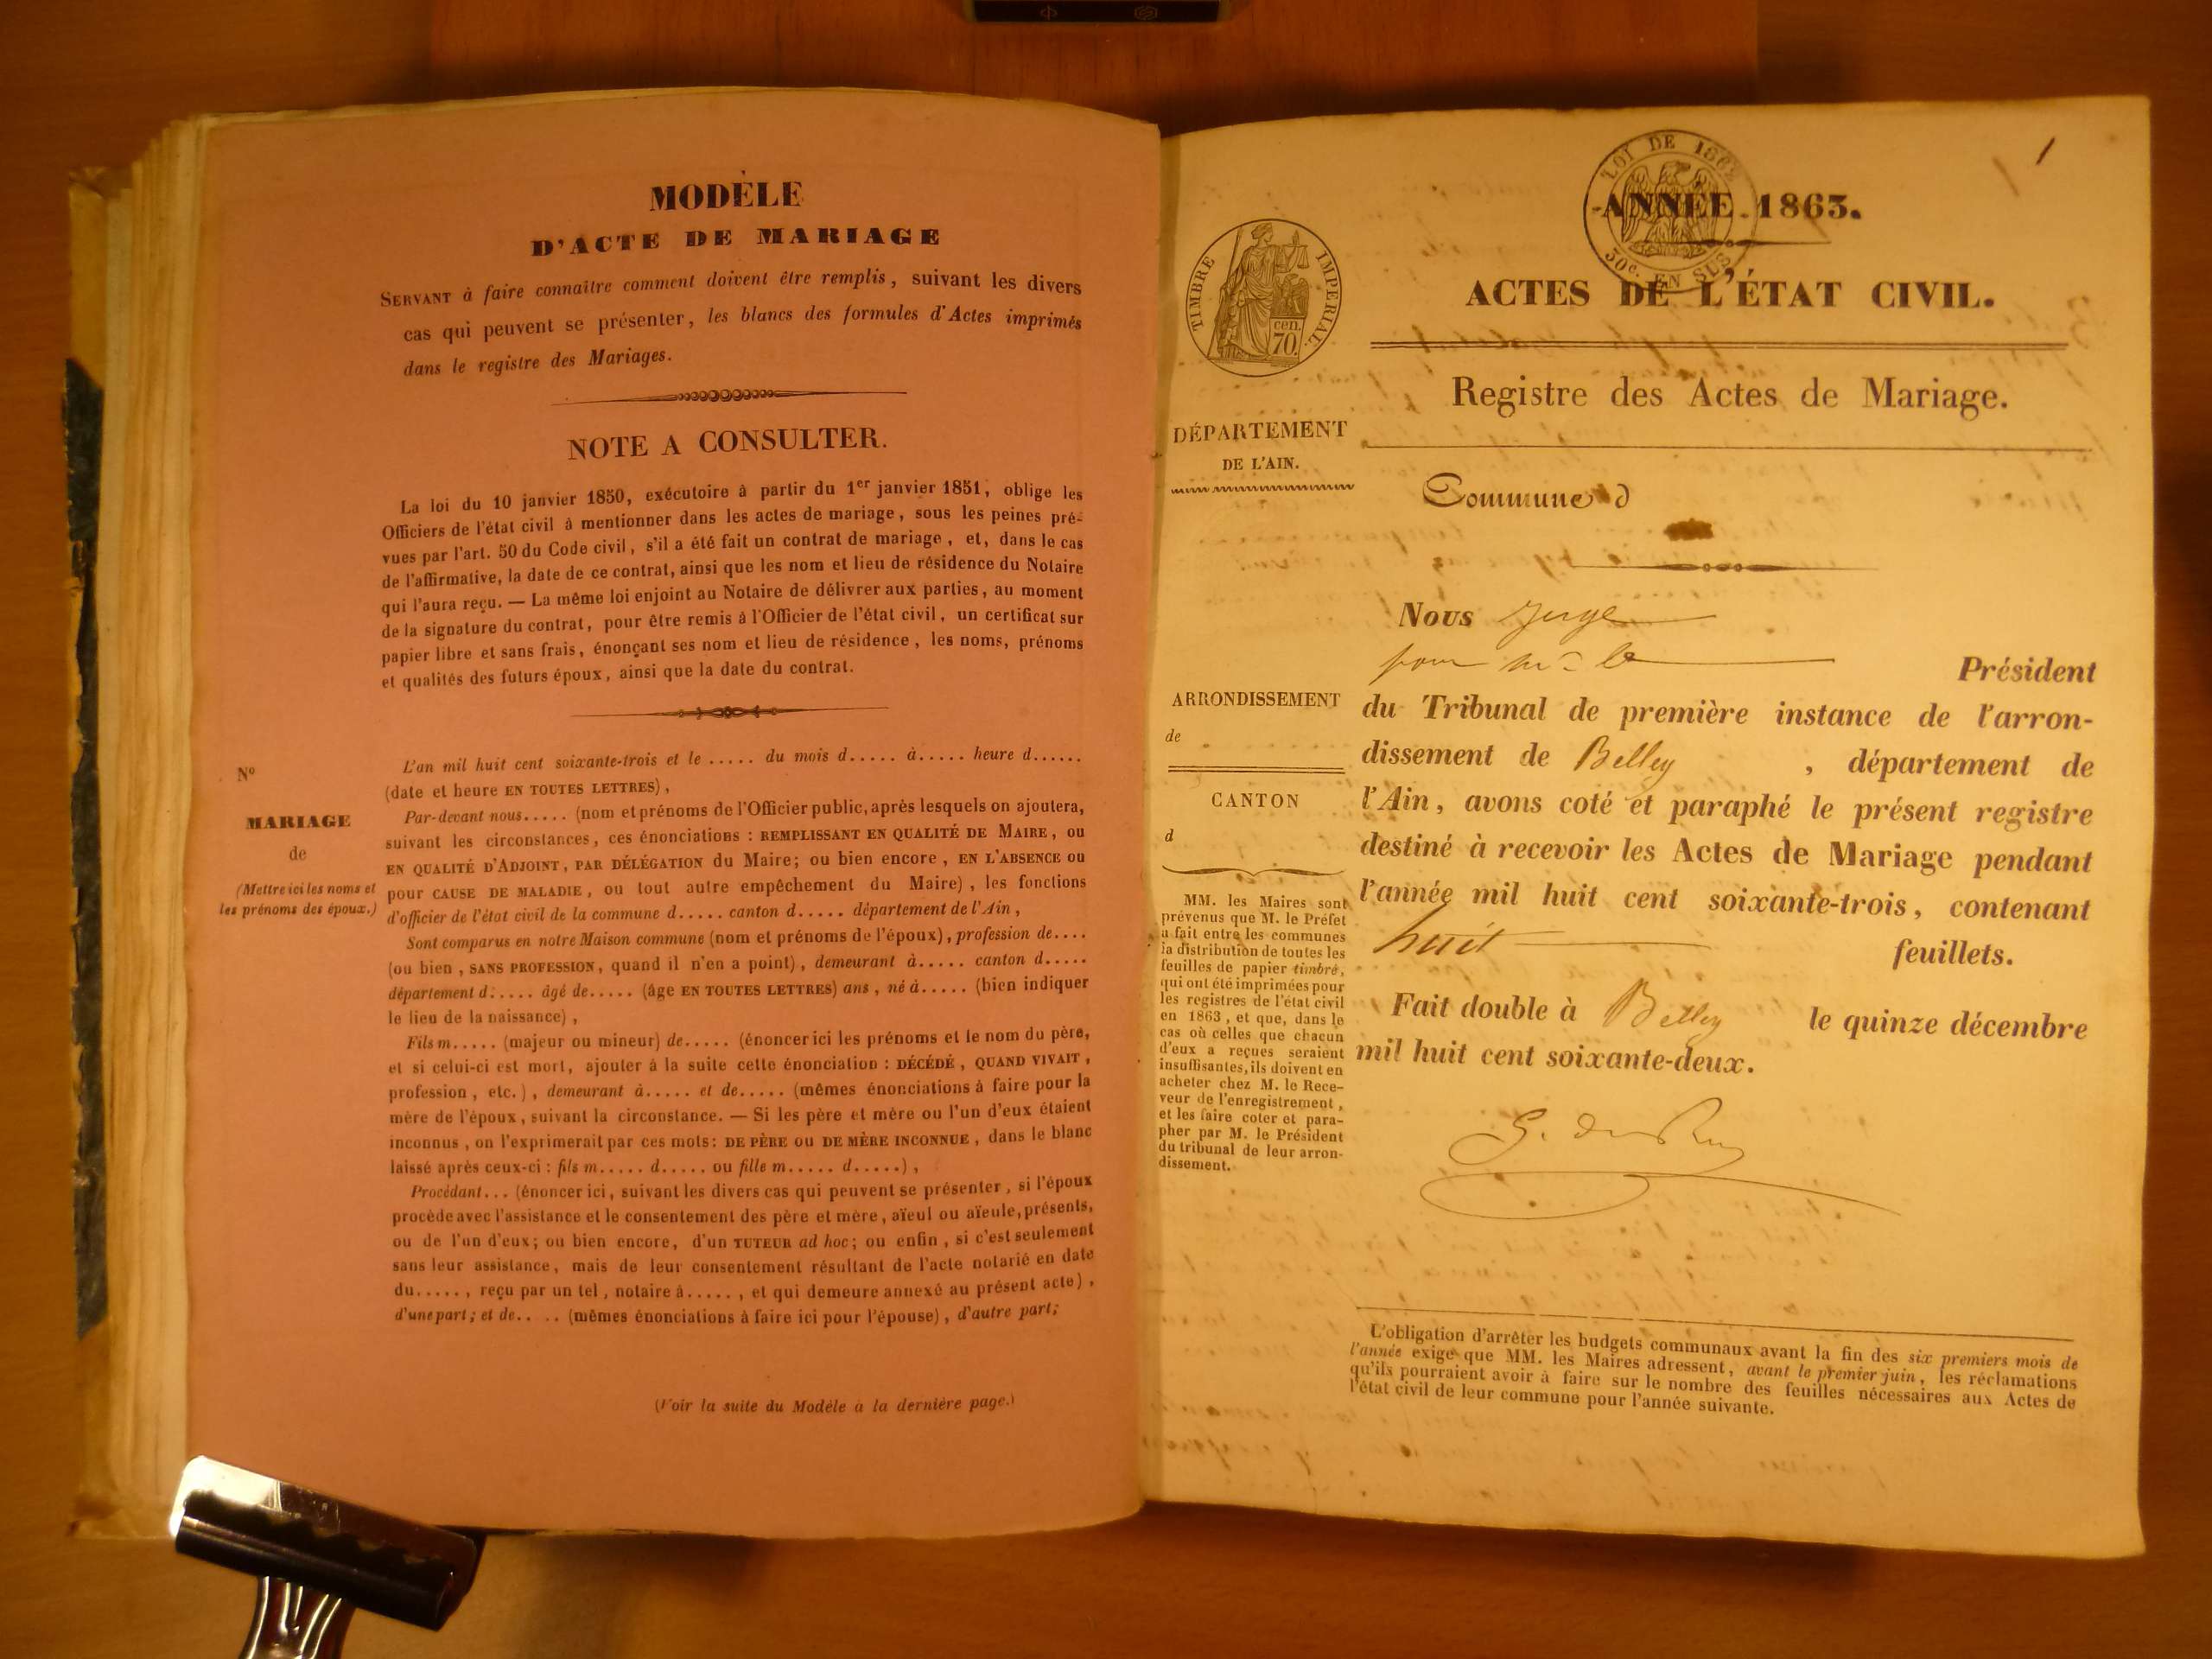 MODÈLE
D'ACTE DE MARIAGE
SERVANT à faire connaître comment doivent être remplis, suivant les divers
cas qui peuvent se présenter, les blancs des formules d'Actes imprimés
dans le registre des Mariages.
NOTE A CONSULTER.
La loi du 10 janvier 1850, exécutoire à partir du 1er janvier 1851, oblige les
Officiers de l'état civil à mentionner dans les actes de mariage, sous les peines pré-
vues par l'art. 50 du Code civil, s'il a été fait un contrat de mariage, et, dans le cas
de l'affirmative, la date de ce contrat, ainsi que les nom et lieu de résidence du Notaire
qui l'aura reçu. — La même loi enjoint au Notaire de délivrer aux parties, au moment
de la signature du contrat, pour être remis à l'Officier de l'état civil, un certificat sur
papier libre et sans frais, énonçant ses nom et lieu de résidence, les noms, prénoms
et qualités des futurs époux, ainsi que la date du contrat.
No
MARIAGE
de
(Mettre ici les noms et
les prénoms des époux.)
L'an mil huit cent soixante-trois et le ..... du mois d..... à..... heure d......
(date et heure EN TOUTES LETTRES),
Par-devant nous..... (nom et prénoms de l'Officier public, après lesquels on ajoutera,
suivant les circonstances, ces énonciations : REMPLISSANT EN QUALITÉ DE MAIRE, ou
EN QUALITÉ D'ADJOINT, PAR DÉLÉGATION du Maire; ou bien encore, EN L'ABSENCE ou
pour CAUSE DE MALADIE, ou tout autre empêchement du Maire), les fonctions
d'officier de l'état civil de la commune d..... canton d..... département de l'Ain,
Sont comparus en notre Maison commune (nom et prénoms de l'époux), profession de....
(ou bien, SANS PROFESSION, quand il n'en a point), demeurant à..... canton d.....
département d..... âgé de..... (âge EN TOUTES LETTRES) ans, né à..... (bien indiquer
le lieu de la naissance),
Fils m..... (majeur ou mineur) de..... (énoncer ici les prénoms et le nom du père,
et si celui-ci est mort, ajouter à la suite cette énonciation : DÉCÉDÉ, QUAND VIVAIT,
profession, etc.), demeurant à..... et de..... (mêmes énonciations à faire pour la
mère de l'époux, suivant la circonstance. — Si les père et mère ou l'un d'eux étaient
inconnus, on l'exprimerait par ces mots: DE PÈRE ou DE MÈRE INCONNUE, dans le blanc
laissé après ceux-ci : fils m..... d..... ou fille m..... d.....),
Procédant... (énoncer ici, suivant les divers cas qui peuvent se présenter, si l'époux
procède avec l'assistance et le consentement des père et mère, aïeul ou aïeule, présents,
ou de l'un d'eux; ou bien encore, d'un TUTEUR ad hoc; ou enfin, si c'est seulement
sans leur assistance, mais de leur consentement résultant de l'acte notarié en date
du....., reçu par un tel, notaire à....., et qui demeure annexé au présent acte),
d'une part; et de.. .. (mêmes énonciations à faire ici pour l'épouse), d'autre part;
(Voir la suite du Modèle à la dernière page.)
1
LOI DE 1862
30c. EN SUS
ANNÉE 1863.
ACTES DE L'ÉTAT CIVIL.
Registre des Actes de Mariage.
TIMBRE IMPÉRIAL.
cen.
70.
DÉPARTEMENT
DE L'AIN.
ARRONDISSEMENT
de
CANTON
d
MM. les Maires sont
prévenus que M. le Préfet
a fait entre les communes
la distribution de toutes les
feuilles de papier timbré,
qui ont été imprimées pour
les registres de l'état civil
en 1863, et que, dans le
cas où celles que chacun
d'eux a reçues seraient
insuffisantes, ils doivent en
acheter chez M. le Rece-
veur de l'enregistrement,
et les faire coter et para-
pher par M. le Président
du tribunal de leur arron-
dissement.
Commune d
Nous Juge
pour Mr le Président
du Tribunal de première instance de l'arron-
dissement de Belley, département de
l'Ain, avons coté et paraphé le présent registre
destiné à recevoir les Actes de Mariage pendant
l'année mil huit cent soixante-trois, contenant
huit feuillets.
Fait double à Belley le quinze décembre
mil huit cent soixante-deux.
L'obligation d'arrêter les budgets communaux avant la fin des six premiers mois de
l'année exige que MM. les Maires adressent, avant le premier juin, les réclamations
qu'ils pourraient avoir à faire sur le nombre des feuilles nécessaires aux Actes de
l'état civil de leur commune pour l'année suivante.